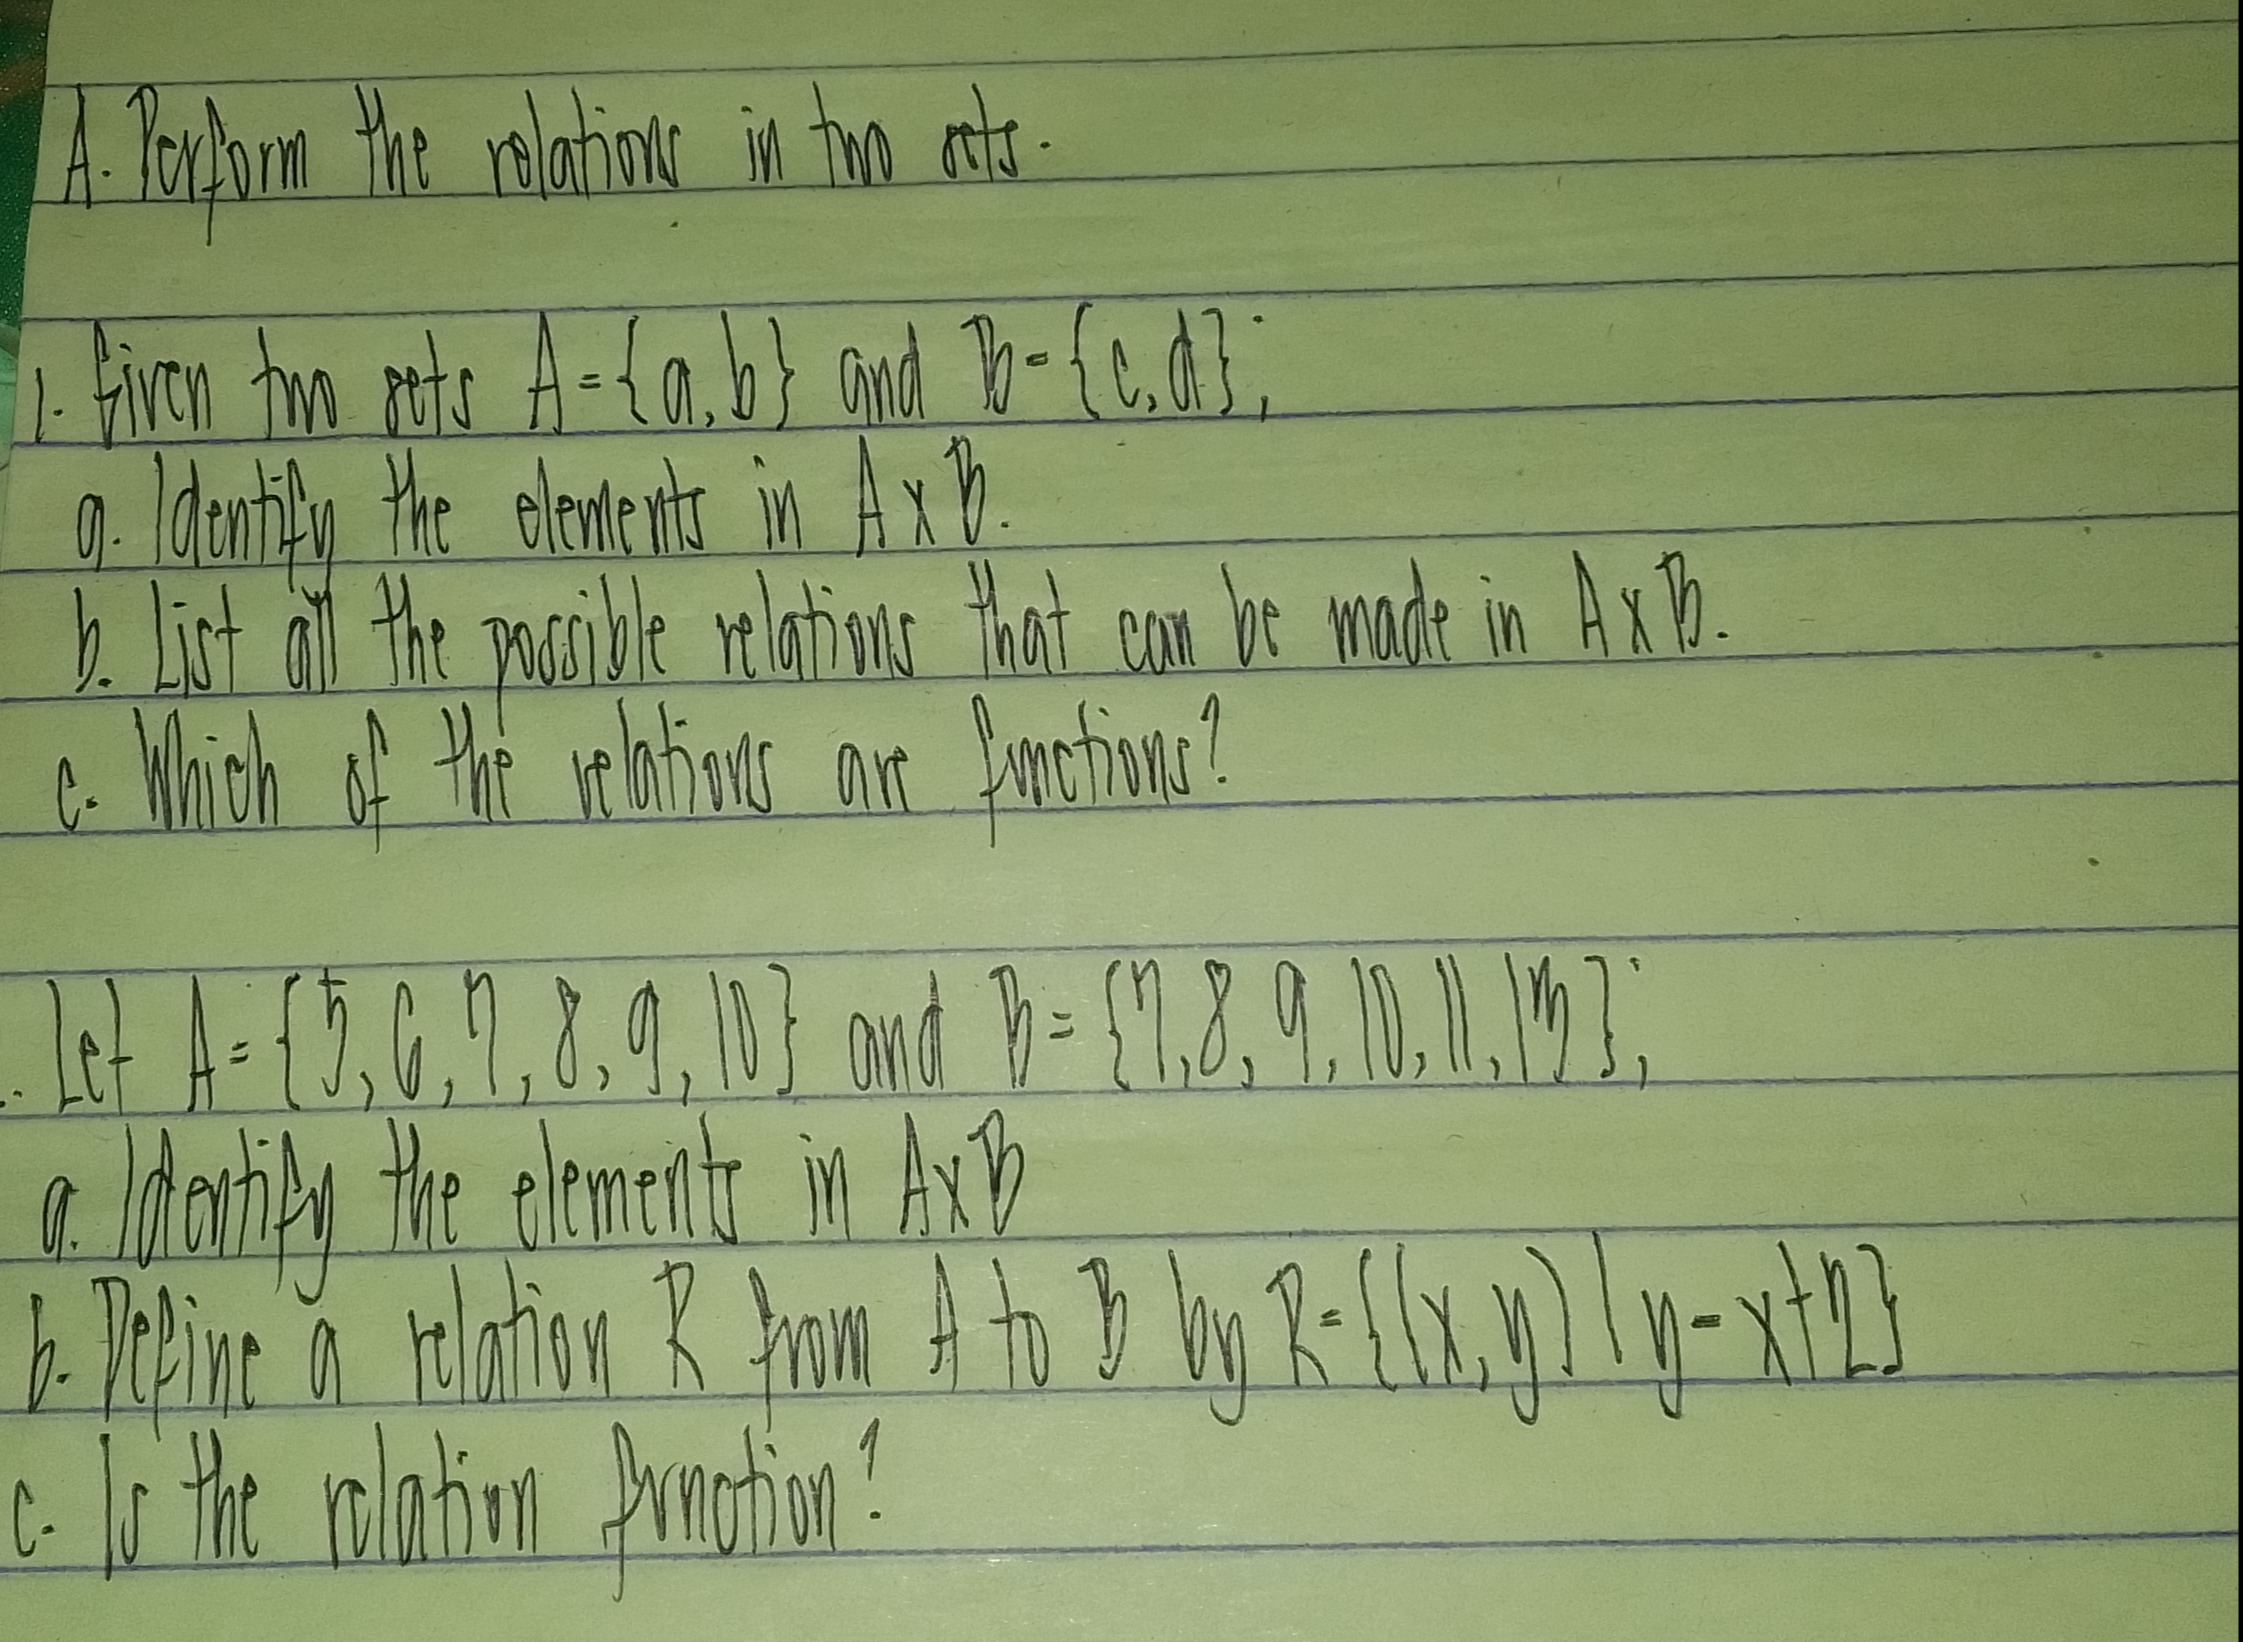 A. Perform the relations in two sets.
1. Given two sets A = {a, b} and B = {c, d};
a. Identify the elements in A x B.
b. List all the possible relations that can be made in A x B.
c. Which of the relations are functions?
. Let A = {5, 6, 7, 8, 9, 10} and B = {7, 8, 9, 10, 11, 13};
a. Identify the elements in A x B
b. Define a relation R from A to B by R = {(x, y) | y = x + 2}
c. Is the relation function?